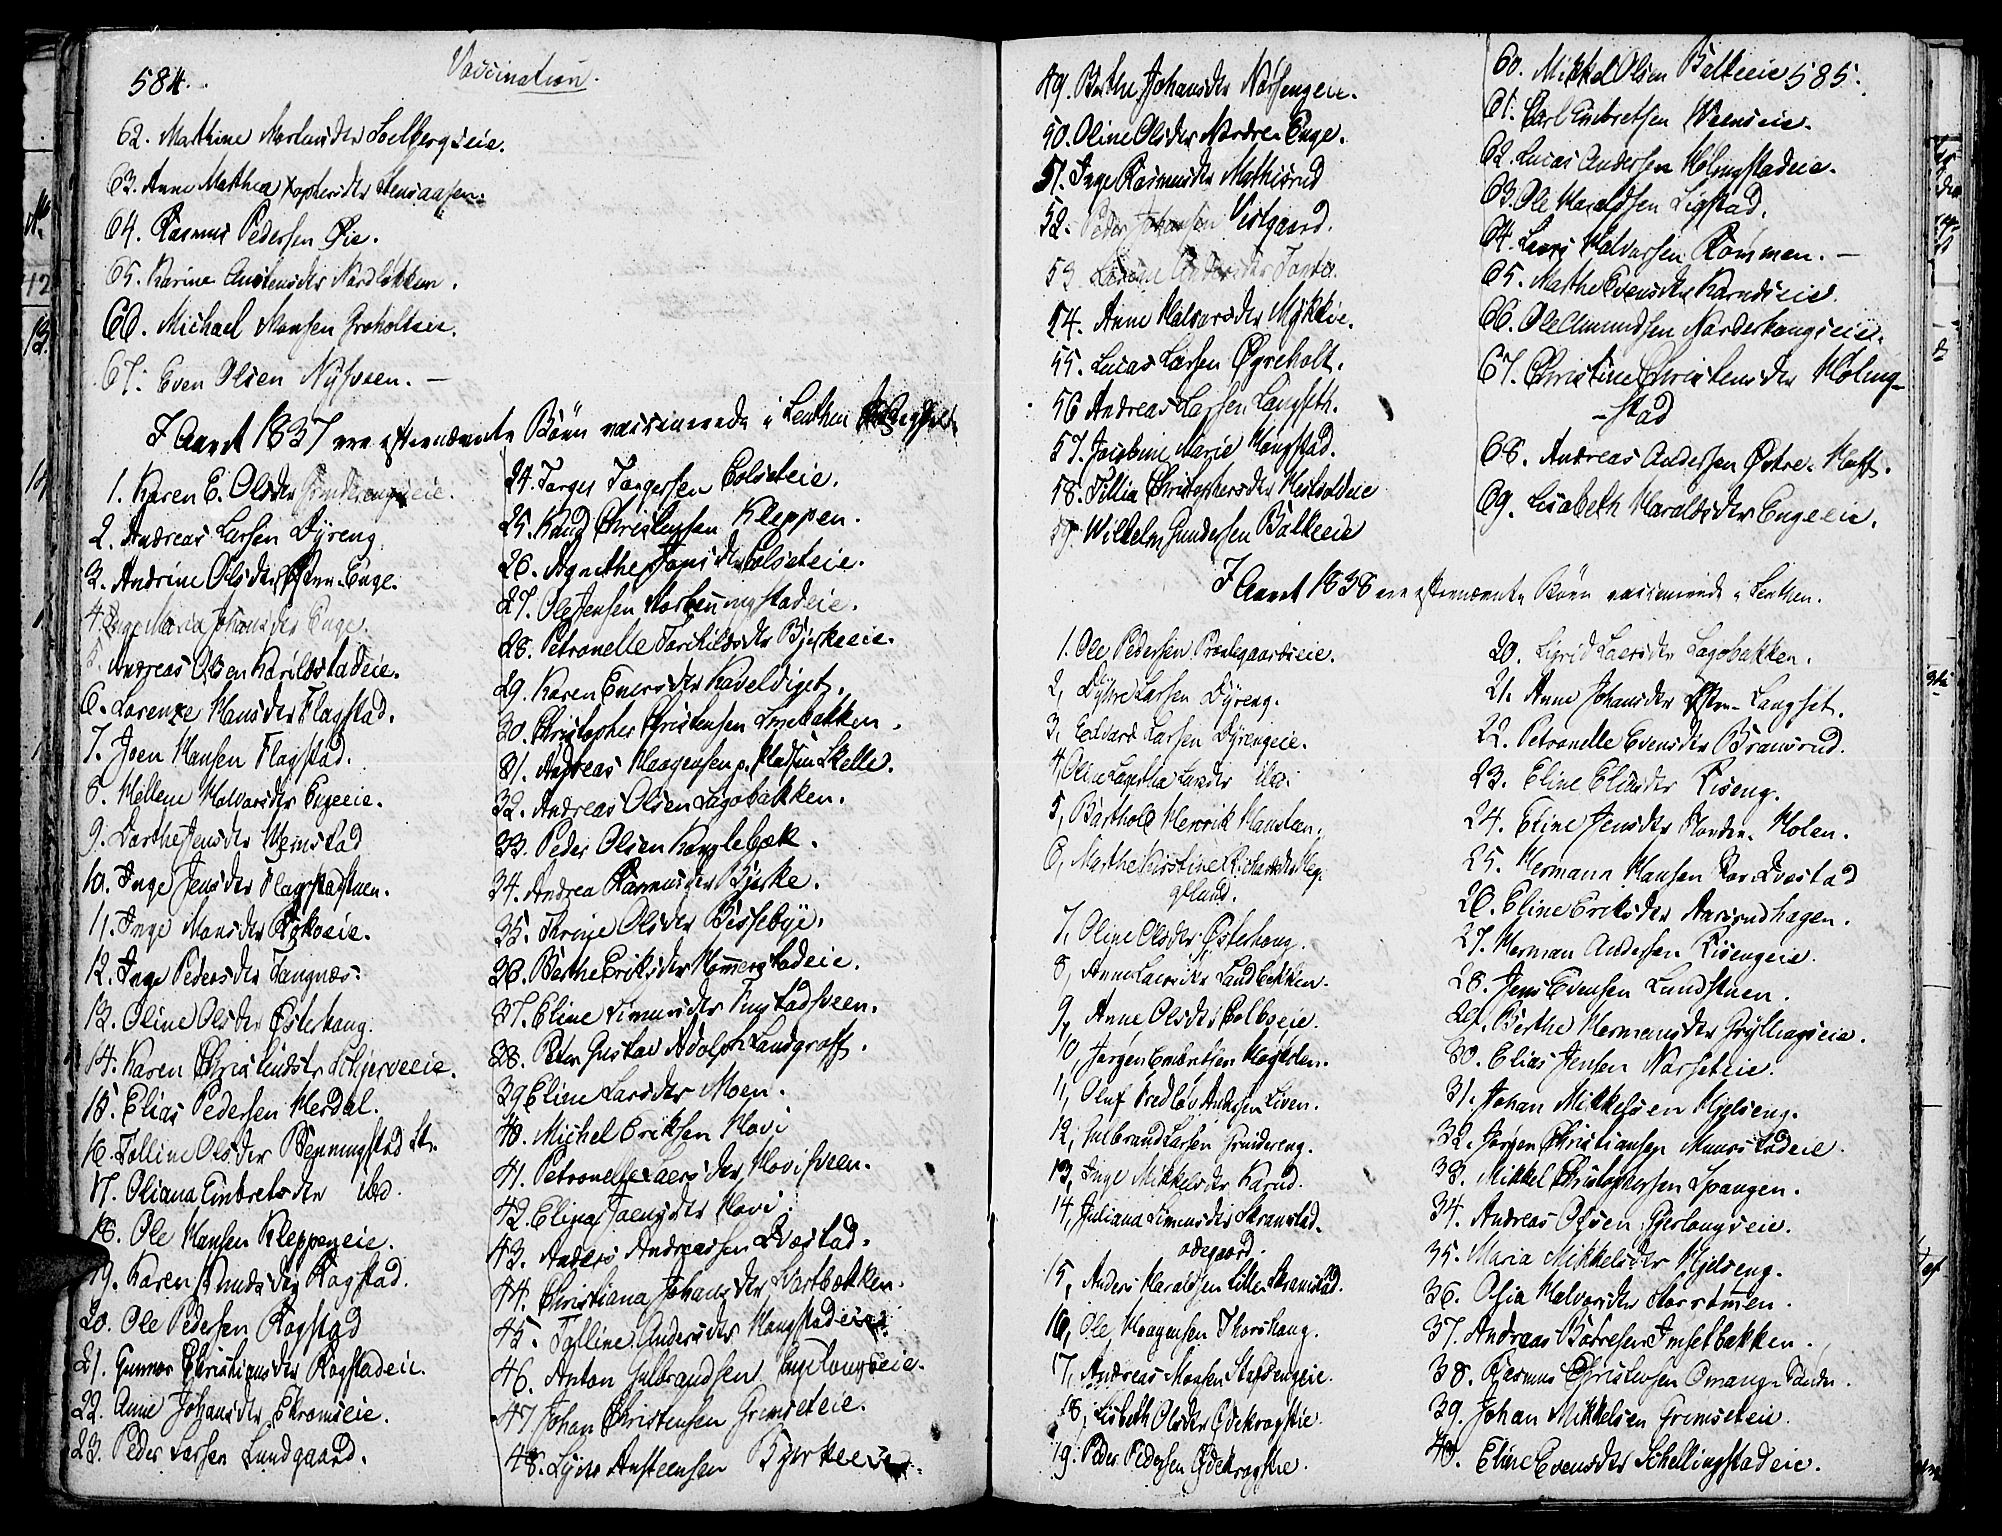 584.
Vaccination.
62. Mathine Mortensder Soelbergseie.
63. Anne Mathea Xtophersder Stensaasen.
64. Rasmus Pedersen Øie.
65. Karine Austensder Nordløkken.
66. Michael Monsen Groholtseie.
67. Even Olsen Nysveen. —
I Aaret 1837 ere efternævnte Børn vaccinerede i Leuthen
1. Karen E. Olsder Grinderengseie.
2. Andreas Larsen Dyreng
3. Andrine Olsder Østre-Enge.
4. Inge Maria Johansder Enge.
5. Andreas Olsen Karilsstadeie.
6. Lorenze Hansder Flagstad.
7. Joen Hansen Flagstad.
8. Hellene Halvorsder Engeeie.
9. Dorthe Jensder Hemstad
10. Inge Jensder Flagstadstuen.
11. Inge Monsder Rokoeie.
12. Inge Pedersder Tangnæs.
13. Oline Olsder Østerhaug.
14. Karen Christiansdr Schjerveeie.
15. Elias Pedersen Herdal.
16. Tolline Olsder Benningstad St.
17. Oliana Embretsder ibd.
18. Ole Hansen Kleppeneie.
19. Karen Knudsder Rogstad.
20. Ole Pedersen Rogstad
21. Gunnor Christiansder Rogstadeie.
22. Anne Johansder Ekromseie.
23. Peder Larsen Lundgaard.
24. Torger Torgersen Colseteie.
25. Knud Christensen Kleppen.
26. Agnethe Hansder Colseteie.
27. Ole Jensen Nordbenningstadeie.
28. Petronelle Torchildsder Bjerkeeie.
29. Karen Eversder Kaveldiget.
30. Christopher Christensen Smebakken.
31. Andreas Haagensen p. Madsen Skelle.
32. Andreas Olsen Lagobakken.
33. Peder Olsen Kouglebæk.
34. Andrea Rasmusder Bjerke.
35. Thrine Olsder Bissebye.
36. Berthe Eriksder Hommerstadeie.
37. Eline Simensder Rustadsveen.
38. Peter Gustav Adolph Landgraff.
39 Eline Larsder Moen.
40. Michel Eriksen Hovi
41. Petronelle Laersder Hovisveen.
42. Eline Joensder Hovi.
43. Anders Andreassen Qvæstad.
44. Christiana Johansder Svartbækken.
45. Tolline Andersder Haugstadeie.
46. Anton Gulbrandsen
47 Johan Christensen Grimseteie.
48. Syver Austeensen Bjerkeeie.
49. Berthe Johansder Norsengeie.
50. Oline Olsder Nordre Enge.
51. Inge Rasmusder Mathisrud
52. Peder Johansen Vestgaard.
53.
54. Anne Halvorsder Mykkeie.
55. Lucas Larsen Ogreholt.
56 Andreas Larsen Langseth.
57. Jacobine Marie Haugstad.
58. Tillia Christophersder Hestvoldeie
59. Wilhelm Gundersen Balkeeie
60. Mikkel Olsen Balkeeie
585.
61. Carl Embretsen Weenseie.
62. Lucas Andersen Holmstadeie.
63. Ole Haraldsen Ligstad.
64. Laers Halvorsen Rommen. —
65. Marthe Evensder Karudseie.
66. Ole Amundsen Norderhaugseie.
67. Christine Christensder Holmg-
-stad
68. Andreas Andersen Østre-Hoff.
69. Lisabeth Haraldsder Engeeie.
I Aaret 1838 ere efternævnte Børn vaccinerede i Leuthen.
1. Ole Pedersen Præstegaardseie.
2, Dyhre Larsen Dyreng.
3, Edvard Larsen Dyrengeie.
4, Oline Lagertha Larsder ibd.
5, Barthold Henrik Hanstan.
6, Marthe Kirstine Richardsder Heg-
gelund.
7, Oline Olsder Østerhaug.
8, Anne Laersder Sandbekken.
9, Anne Olsder Colbyeie.
10, Jørgen Embretsen Hagestan.
11, Oluf Fredløv Andersen Liven.
12, Gulbrand Larsen Grindereng.
13, Inge Mikkelsder Karud.
14, Juliana Simensder Skramstad-
ødegaard.
15, Anders Haraldsen Lille Skramstad.
16, Ole Haagensen Thorshaug.
17, Andreas Monsen Stafsengeie.
18, Lisbeth Olsder Ødekragstie.
19. Peder Pedersen Ødekragstie.
20. Sigrid Laersder Lagobakken.
21. Anne Johansder Østre-Langset.
22. Petronelle Evensder Bransrud.
23. Eline Eliasder Riseng.
24. Eline Jensder Nordre-Holen.
25. Hermann Hansen Nor-Qvestad
26. Eline Eriksder Aasrudhagen.
27. Herman Andersen Risengeie.
28. Jens Evensen Lundstuen.
29. Berthe Hermansder Gryllingseie.
30. Elias Jensen Norseteie.
31. Johan Mikkelsen Hjelseng.
32. Jørgen Christiansen Maarstadeie.
33. Mikkel Christophersen Spangen.
34. Andreas Olsen Gjerlaugseie.
35. Maria Mikkelsder Hjelseng.
36. Olia Halvorsder Storrømmen.
37. Andreas Baardsen Imsetbakken.
38. Rasmus Christensen Omang-Søndre.
39. Johan Mikkelsen Grimseteie.
40. Eline Evensder Schellingstadeie.